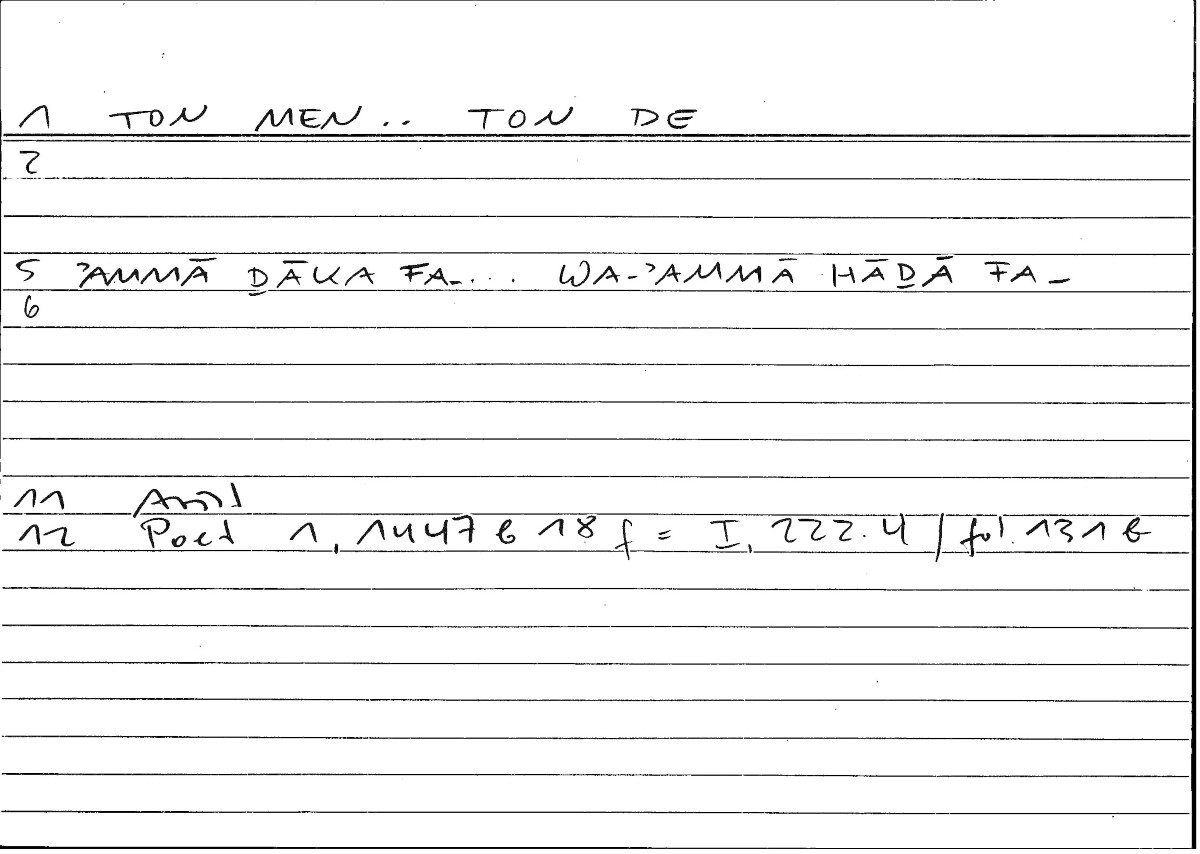 1 TON MEN.. TON DE
2
5 ʾAMMĀ ḎĀKA FA-... WA-ʾAMMĀ HĀḎĀ FA-
6
11 Arist
12 Poet 1, 1447 b 18 f = I, 222.4 / fol. 131 b